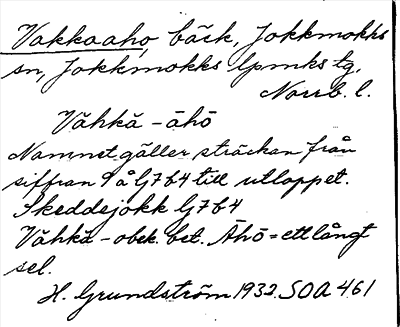 Vakkaaho, bäck, Jokkmokks
sn, Jokkmokks lpmks tg,
Norrb. l.
Vǎhkǎ - āhō
Namnet gäller sträckan från
siffran 9 å Lj764 till utloppet.
Skeddejokk Lj764
Vǎhkǎ - obek. bet. Āhō = ett långt
sel.
H. Grundström 1932. SOA 461